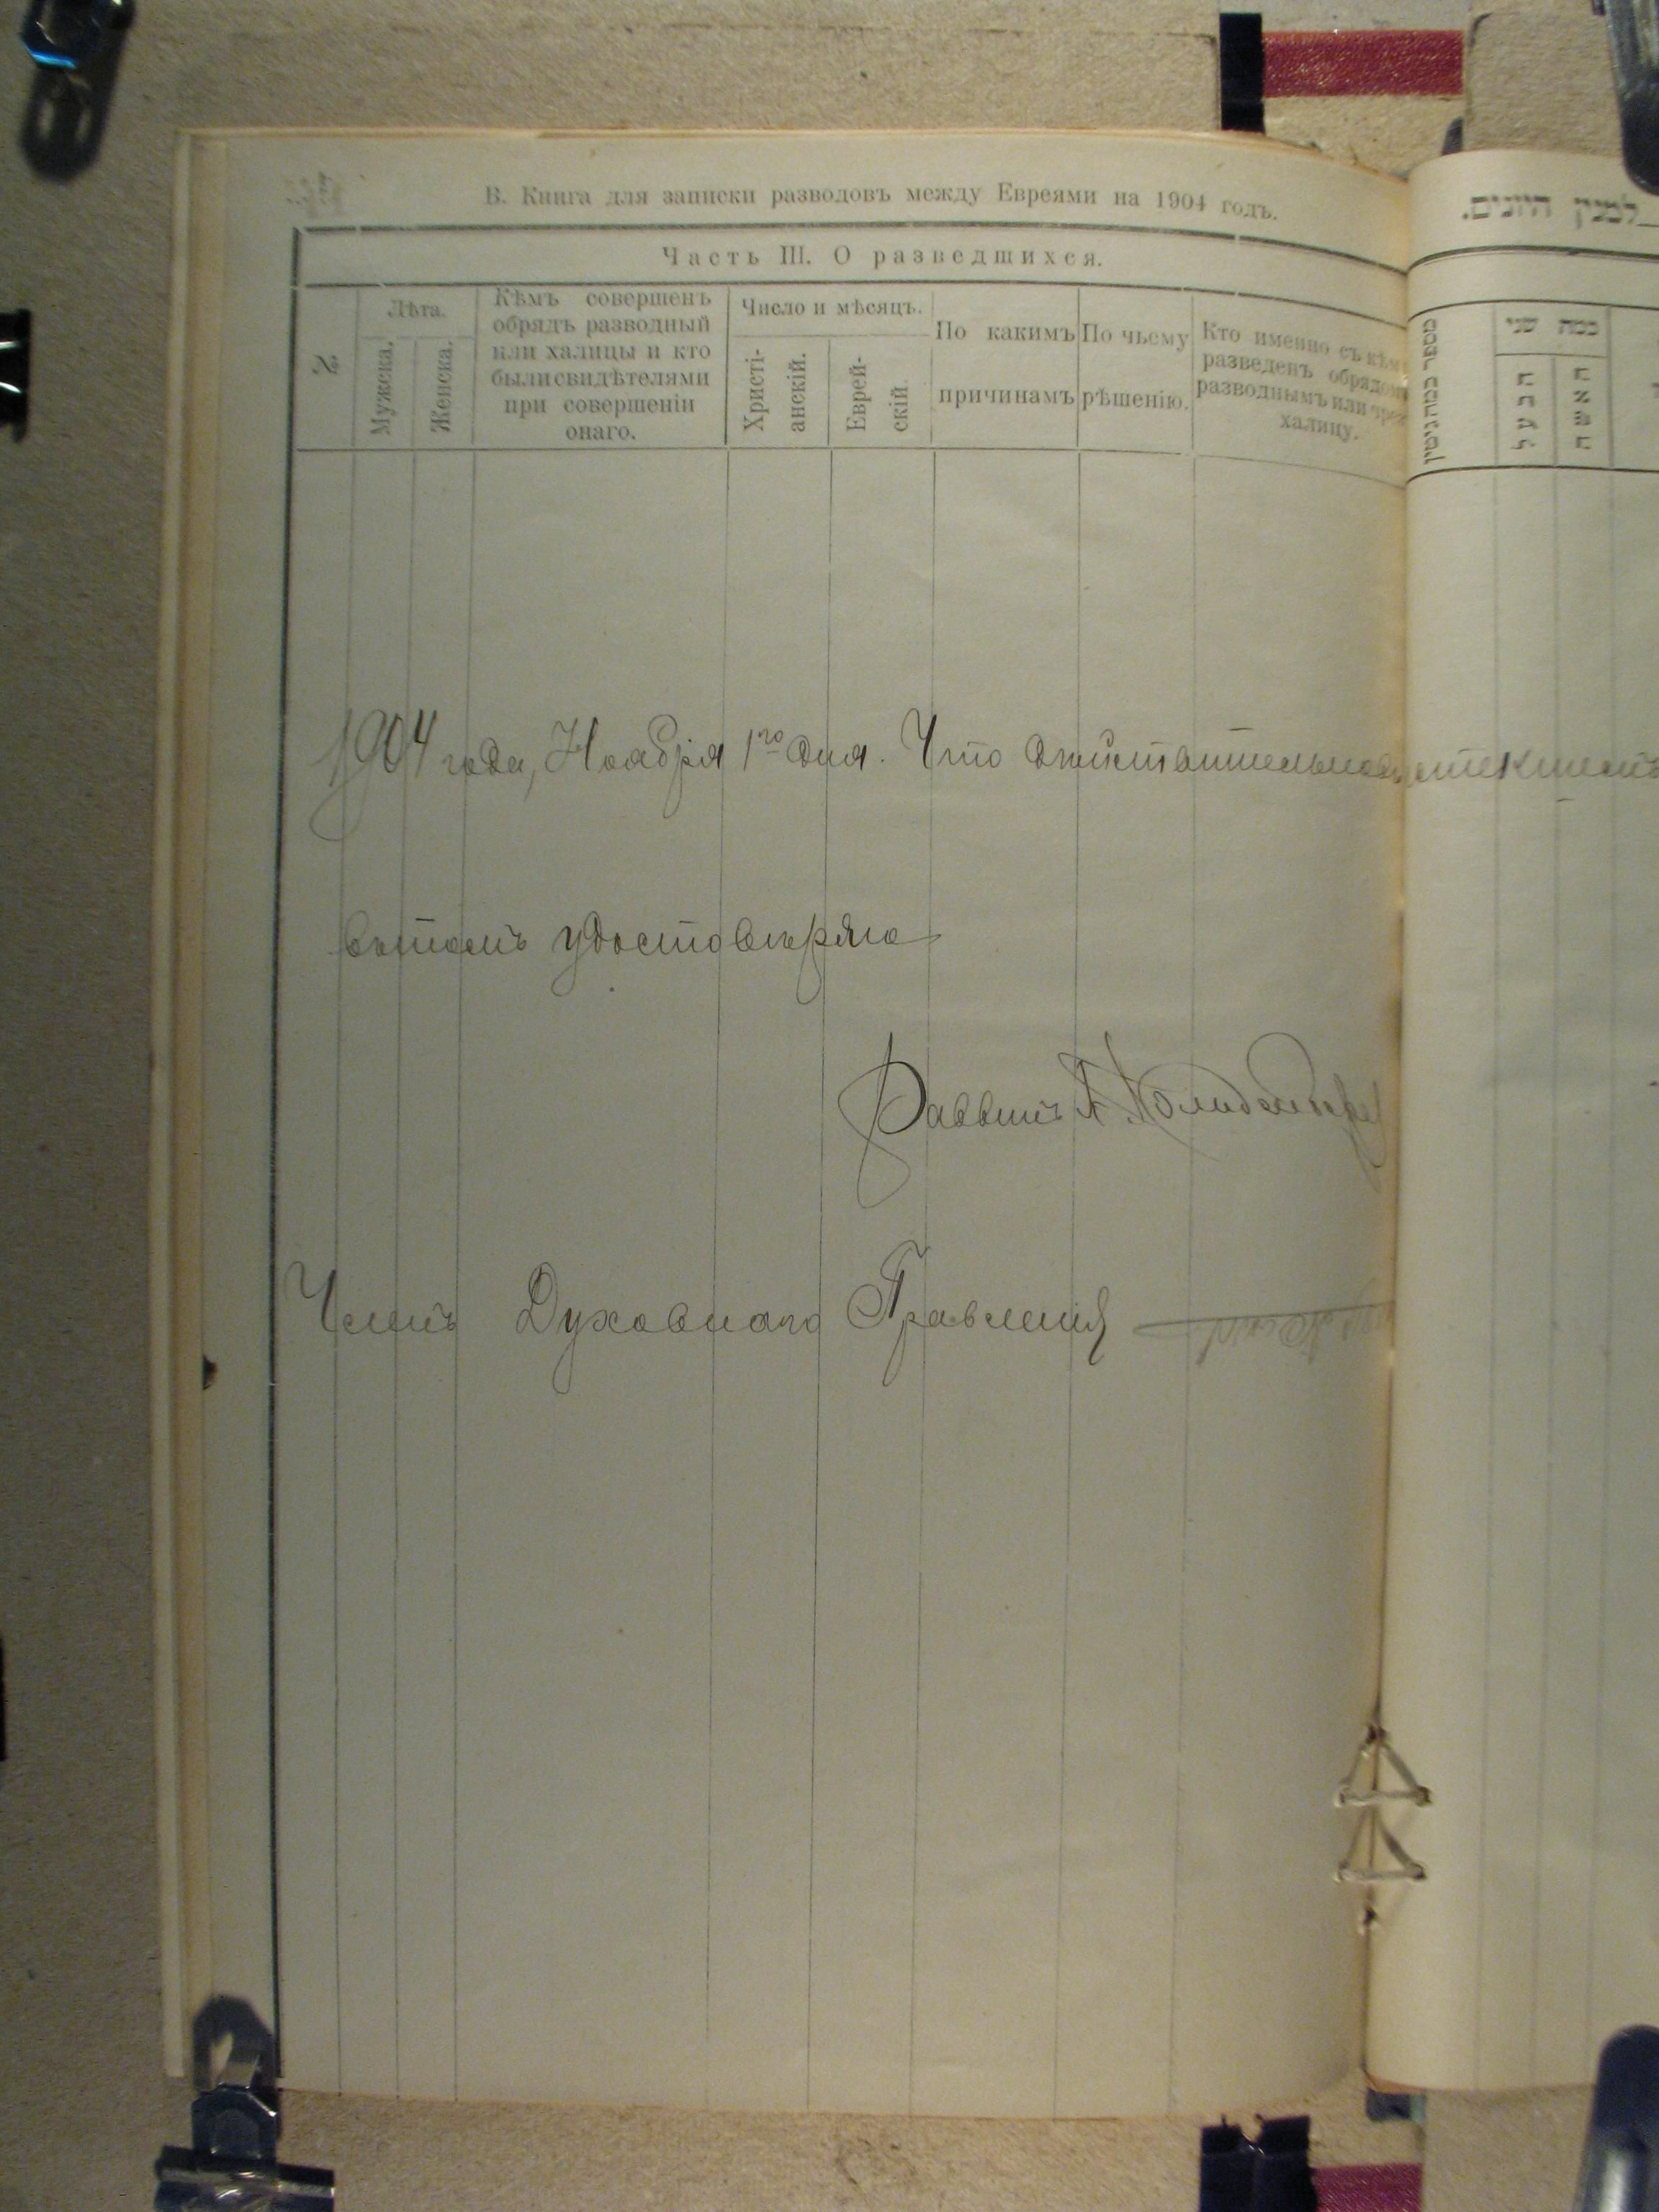 В. Книга для записки разводовъ между Евреями на 1904 годъ.
Часть III. О разведшихся.
№
Лѣта.
Мужеска.
Женска.
Кѣмъ совершенъ
обрядъ разводный
или халицы и кто
были свидѣтелями
при совершеніи
онаго.
Число и мѣсяцъ.
Христі-
анскій.
Еврей-
скій
По какимъ
причинамъ
По чьему
рѣшенію.
Кто именно съ кѣмъ
разведенъ обрядомъ
разводнымъ или чрезъ
халицу.
1904 года, Ноября 1го дня. Что дѣйствительно
въ томъ удостовѣряю
Раввинъ
Членъ Духовнаго Правленія
היונים.
מספר כמה גיטין
כמה שני
הבעל
האשה